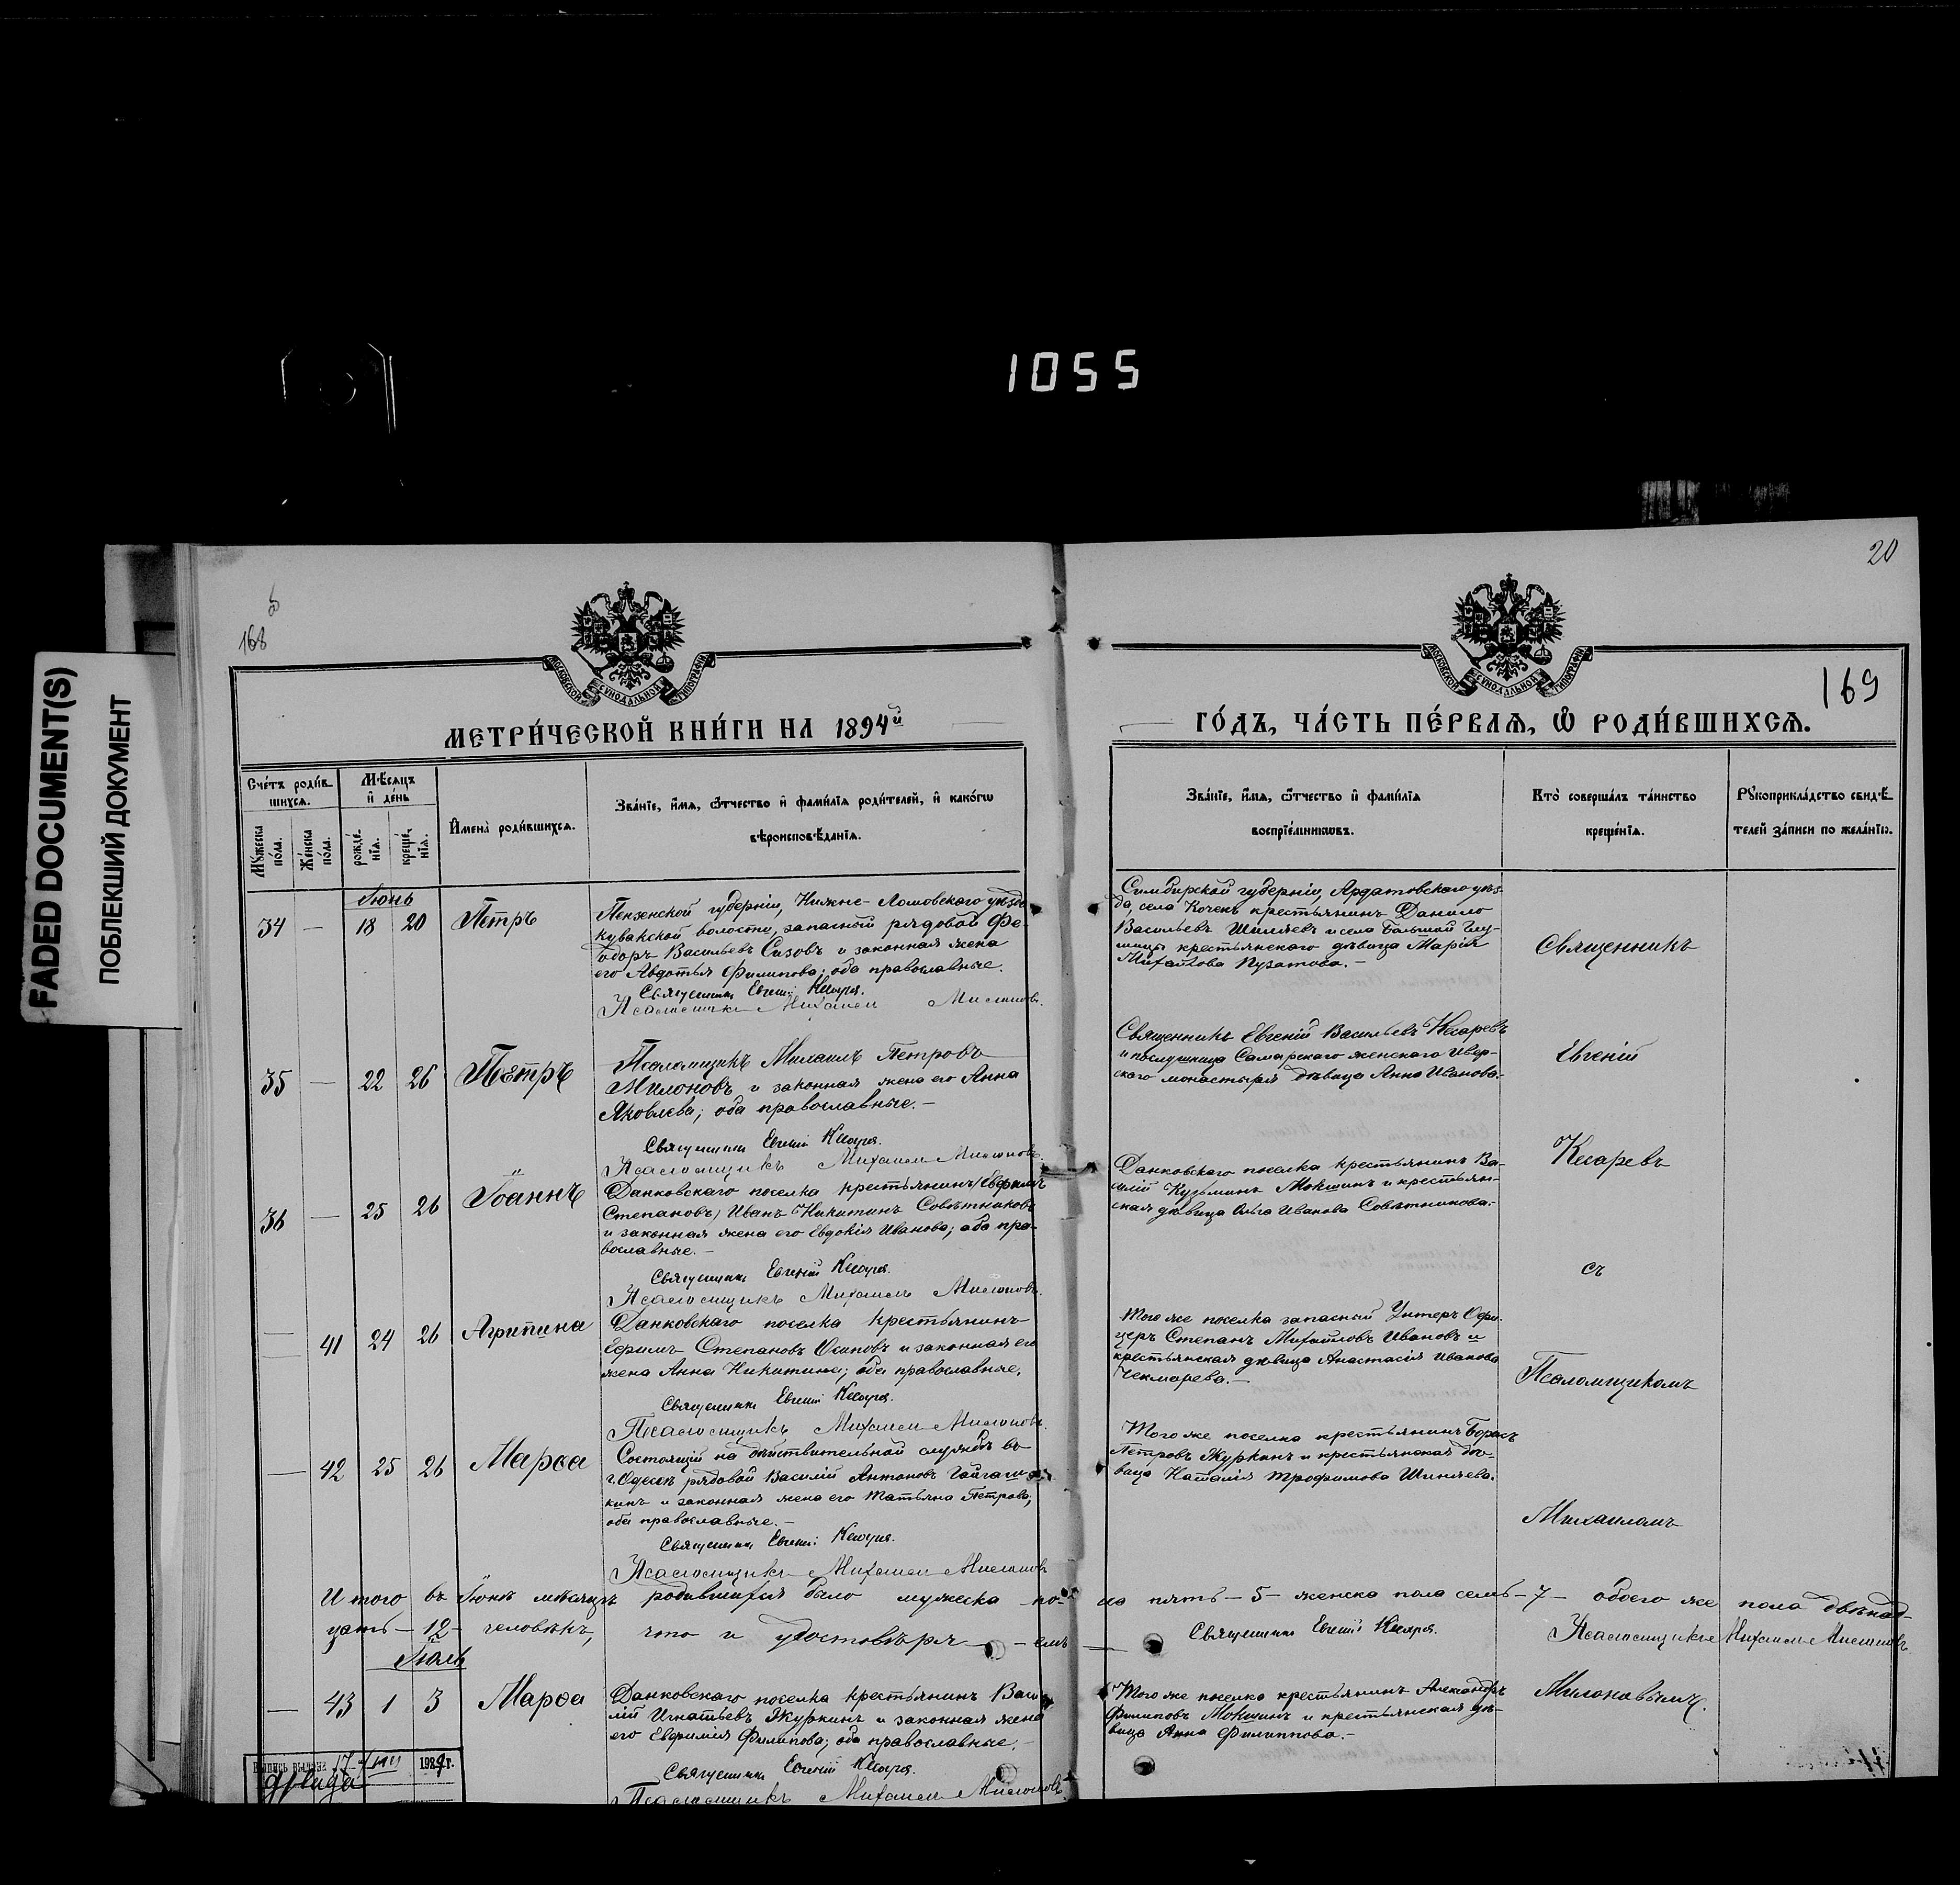 1055
FADED DOCUMENT(S)
ПОБЛЕКШИЙ ДОКУМЕНТ
168
20
169
МОСКОВСКОЙ СУНОДАЛЬНОЙ ТИПОГРАФІИ
МОСКОВСКОЙ СУНОДАЛЬНОЙ ТИПОГРАФІИ
МЕТРИ́ЧЕСКОЙ КНИ́ГИ НА 1894й
ГО́ДЪ, ЧА́СТЬ ПЕ́РВАѦ, Ѡ РОДИ́ВШИХСѦ.
Сче́тъ роди́в-
шихсѧ.
Мꙋ́жеска по́ла.
Же́нска по́ла.
Мѣ́сѧцъ и҆ де́нь
рожде́нїѧ.
креще́нїѧ.
И҆мена̀ роди́вшихсѧ.
Зва́нїе, и҆́мѧ, ѻ҆́тчество и҆ фами́лїѧ роди́телей, и҆ како́гѡ
вѣроисповѣ́данїѧ.
Зва́нїе, и҆́мѧ, ѻ҆́тчество и҆ фами́лїѧ
воспрїе́мникѡвъ.
Кто̀ соверша́лъ та́инство
креще́нїѧ.
Рꙋкоприкла́дство свидѣ́-
телей за́писи по жела́нїю.
Іюнь
34 — 18 20 Петръ
Пензенской губерніи, Нижне-Ломовского уѣзда
Кувакской волости, запасный рядовой Фе-
одоръ Васильевъ Сизовъ и законная жена
его Авдотья Филипова; оба православные.
Священникъ Евгеній Кесаревъ.
Псаломщикъ Михаилъ Милоновъ.
Симбирской губерніи, Ардатовскаго уѣз-
да, села Кочекъ крестьянинъ Данило
Васильевъ Шиляевъ и села Большой Глу-
шицы крестьянскаго дѣвица Марія
Михайлова Пузатова.—
Священникъ
35 — 22 26 Петръ
Псаломщикъ Михаилъ Петровъ
Милоновъ и законная жена его Анна
Яковлева; оба православные.—
Священникъ Евгеній Кесаревъ.
Псаломщикъ Михаилъ Милоновъ.
Священникъ Евгеній Васильевъ Кесаревъ
и послушница Самарскаго женскаго Ивер-
скаго монастыря дѣвица Анна Иванова.
Евгеній
Кесаревъ
36 — 25 26 Іоаннъ
Данковскаго поселка крестьянинъ (Ефримъ
Степановъ) Иванъ Никитинъ Совѣтниковъ
и законная жена его Евдокія Иванова; оба пра-
вославные.—
Священникъ Евгеній Кесаревъ.
Псаломщикъ Михаилъ Милоновъ.
Данковскаго поселка крестьянинъ Ва-
силій Кузьминъ Мокшинъ и крестьян-
ская дѣвица Ольга Иванова Совѣтникова.
съ
— 41 24 26 Агрипина
Данковскаго поселка крестьянинъ
Ефримъ Степановъ Осиповъ и законная его
жена Анна Никитина; оба православные.
Священникъ Евгеній Кесаревъ.
Псаломщикъ Михаилъ Милоновъ.
Того же поселка запасный Унтеръ Офи-
церъ Степанъ Михайловъ Ивановъ и
крестьянская дѣвица Анастасія Иванова
Чекмарева.—
Псаломщикомъ
— 42 25 26 Марѳа
Состоящій на дѣйствительной службѣ въ
г. Одессѣ рядовой Василій Антоновъ
и законная жена его Татьяна Петрова;
оба православные.—
Священникъ Евгеній Кесаревъ.
Псаломщикъ Михаилъ Милоновъ
Того же поселка крестьянинъ Борисъ
Петровъ Журкинъ и крестьянская дѣ-
вица Наталія Трофимова Шиняева.
Михаиломъ
Итого въ Іюнѣ мѣсяцѣ родившихся было мужеска по- ла пять — 5 — женска пола семь — 7 — обоего же пола двѣнад-
цать — 12 — человѣкъ, что и удостовѣря- емъ — Священникъ Евгеній Кесаревъ. Псаломщикъ Михаилъ Милоновъ
Іюль
— 43 1 3 Марѳа
Данковскаго поселка крестьянинъ Васи-
лій Игнатьевъ Журкинъ и законная жена
его Евфимія Филипова; оба православные.—
Священникъ Евгеній Кесаревъ.
Псаломщикъ Михаилъ Милоновъ.
Того же поселка крестьянинъ Александръ
Филиповъ Мокшинъ и крестьянская дѣ-
вица Анна Филиппова.—
Милоновымъ.